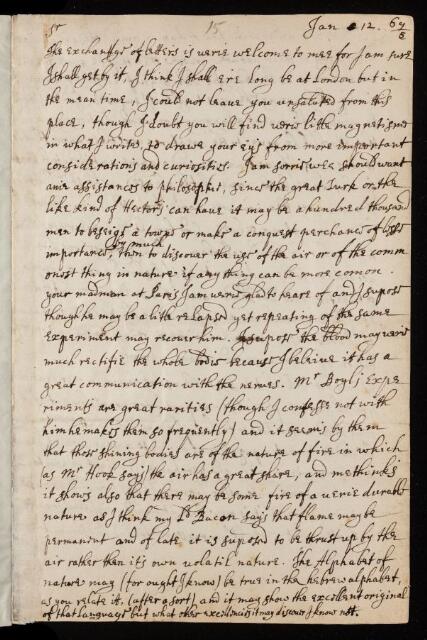 Sr 15 Jan 12. 67/8
The exchange of letters is verie welcome to mee for I am sure
I shall get by it, I think I shall e're long be at London but in
the mean time, I could not leave you unsaluted from this
place, though I doubt you will find verie little magnetisme
in what I write, to drawe your ey's from more important
considerations and curiosities. I am sorrie wee should want
anie assistances to philosophie, since the great Turk or the
like kind of Hectors can have it may be a hundred thousand
men to beseige a towne or make a conquest perchance of lesse
importance by much, than to discover the use of the air or of the comm
onest thing in nature if any thing can be more comon.
your madman at Paris I am verie glad to heare of and I suppose
though he may be a litle relapsed yet repeating of the same
experiment may recover him. I suppose the blood may verie
much rectifie the whole bodie because I beleive it has a
great communication with the nerves. Mr Boyl's Expe
riments are great rarities (though I confesse not with
him hee makes them so frequently) and it seem's by them
that those shining bodies are of the nature of fire in which
(as Mr Hook says) the air has a great share, and methinckes
it shows also that there may be some fire of a verie durable
nature as I think my Ld Bacon says that flame may be
permanent and of late it is suposed to be thrust up by the
air rather then its own volatil nature. The Alphabet of
nature may (for ought I know) be true in the hebrew alphabet,
as you relate it, (after a sort) and it may show the excellent original
of that language but what other excellencies it may discover I know not.